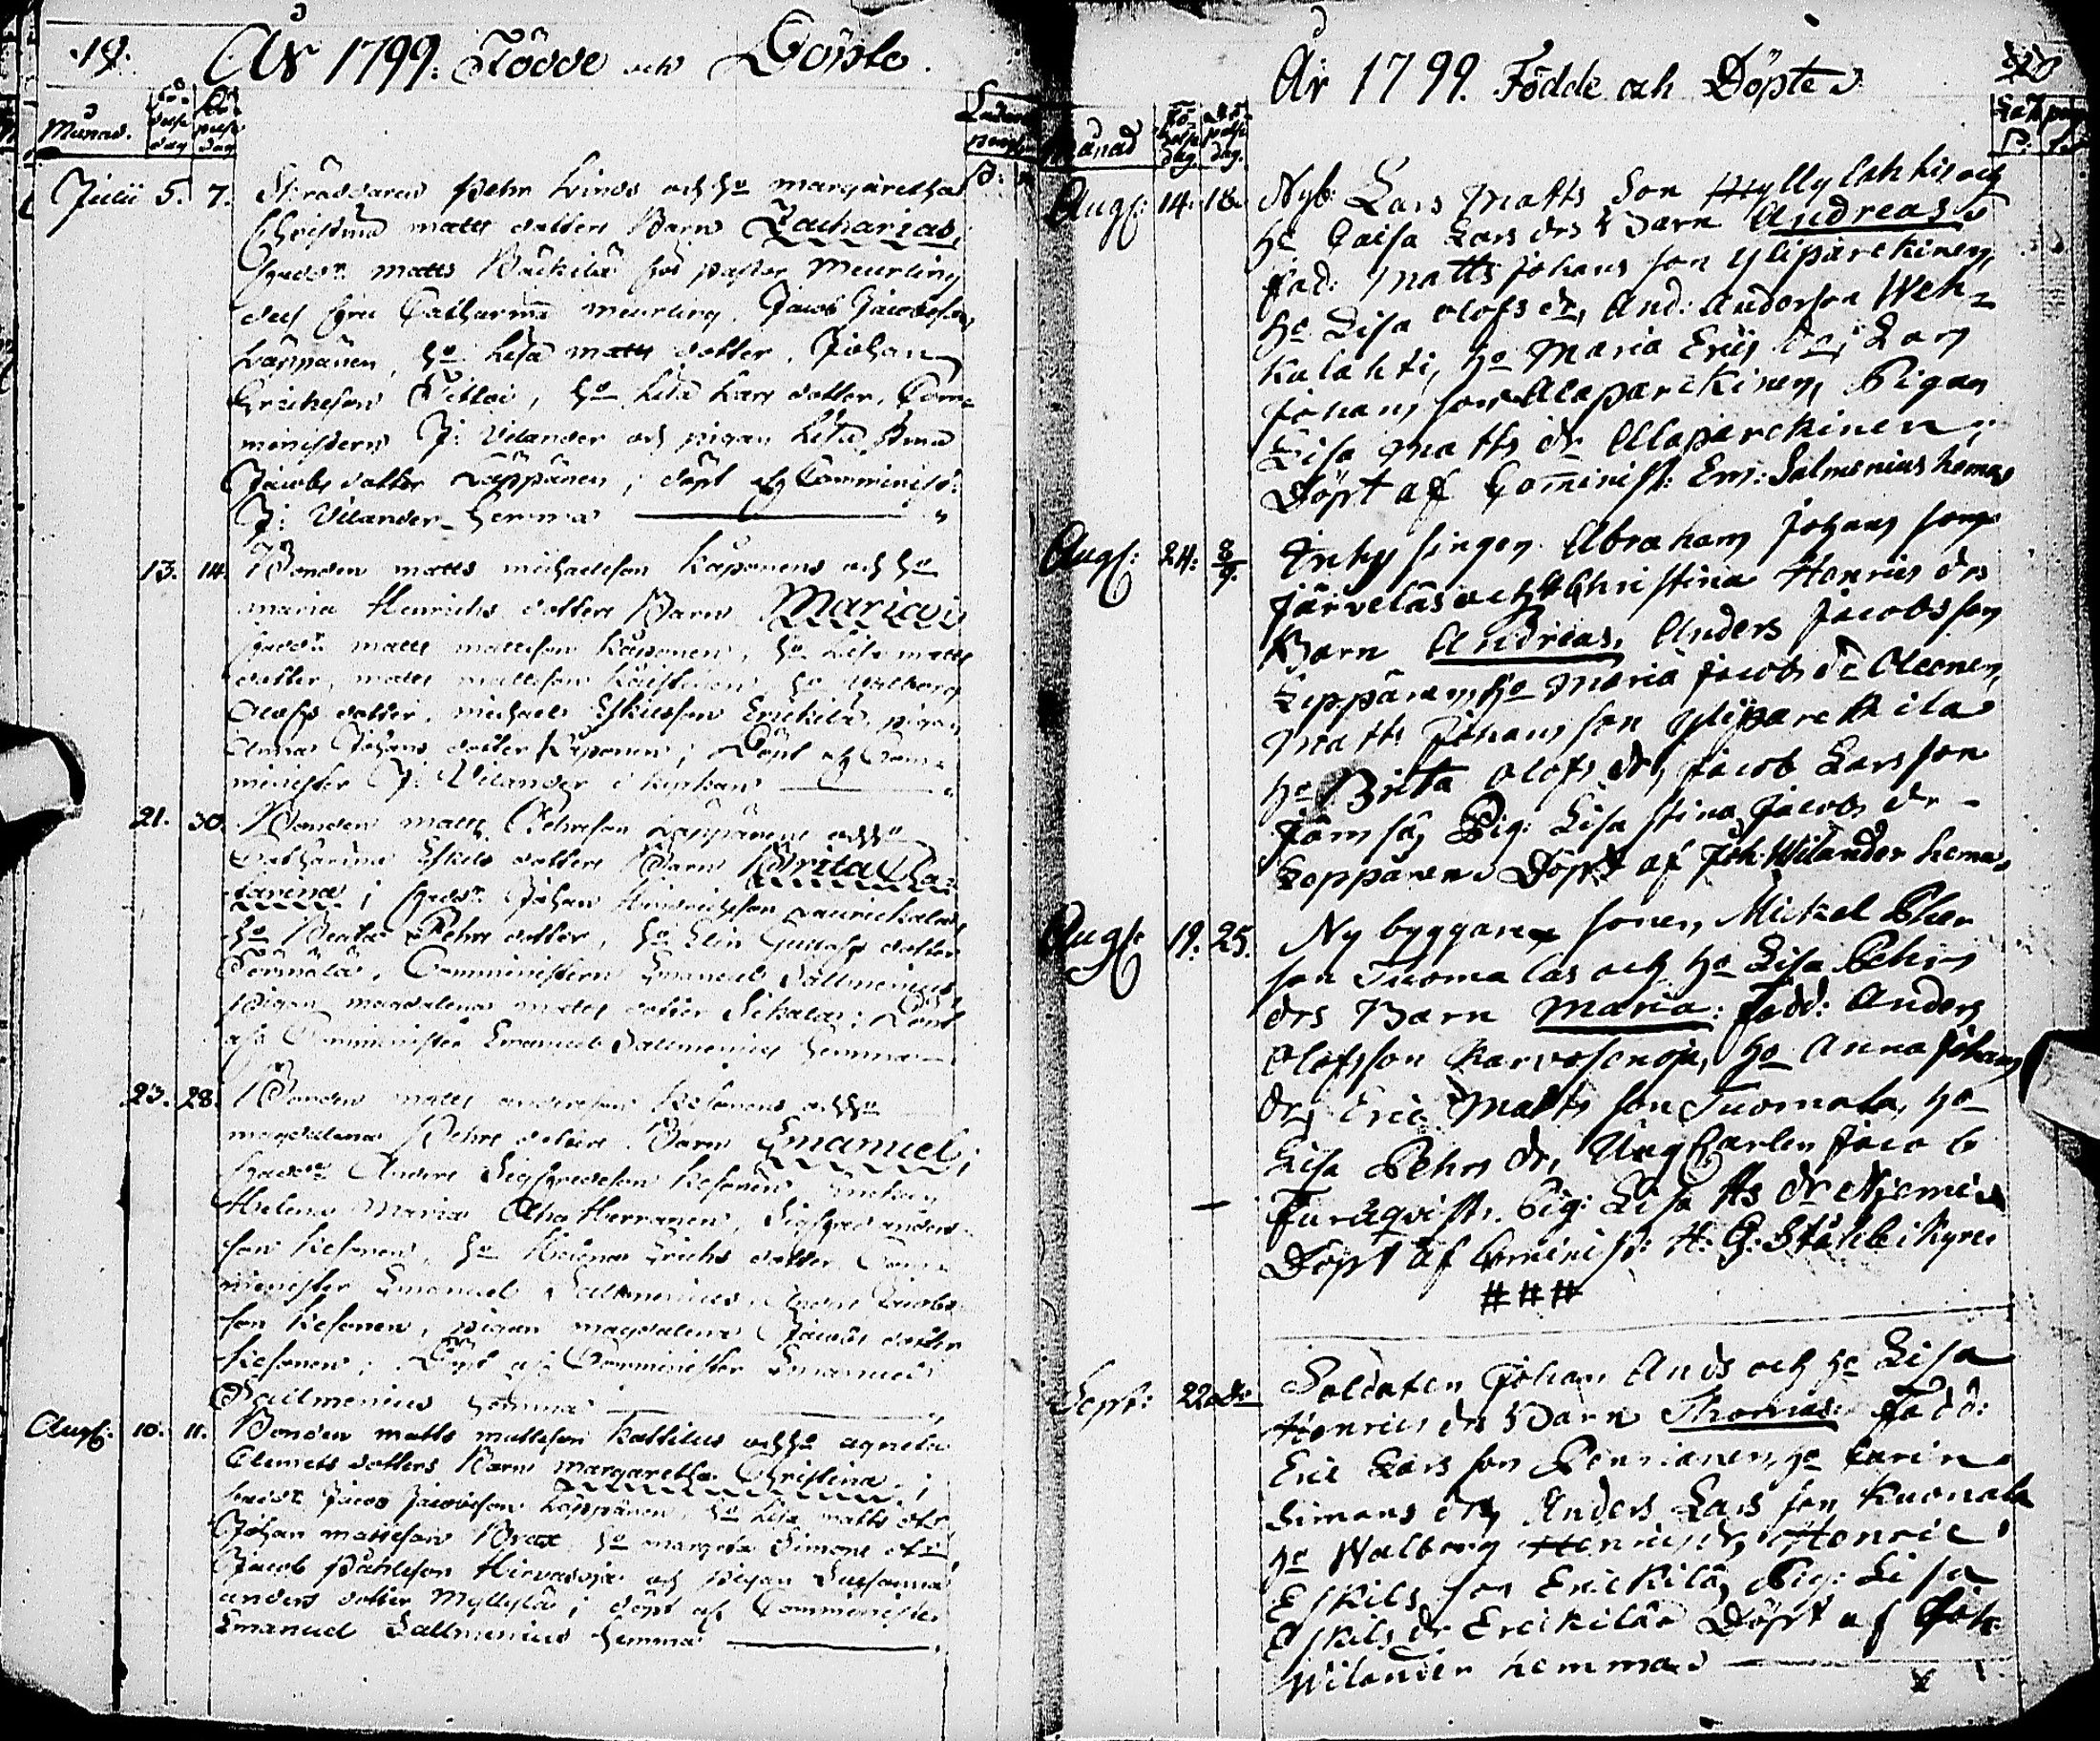 19.
År 1799. Födde och Döpte.
Månad. Födelse dag Döpelse dag
Julii 5. 7. Skräddaren Pehr Linds och hu margaretha
Christina matts dotters Barn Zacharias;
faddr: matts Bäckila hos pastor Meurling
dess fru Catharina meurling, Jacob Jacobsson
Läppänen, hu Lisa matts dotter, Johan
Erichsson, hu Lisa Lars dotter, Com-
ministern J: Vilander och pigan Lisa
Jacobs dotter Läppänen; döpt af Comminist:
J: Vilander hemma
13. 14. Bonden matts michaelsson Kaponens och hu
maria Henrichs dotters Barn Maria;
faddr matts mattsson Kaponen, hu Lisa matts
dotter, matts mattsson, hu Walborg
Olofs dotter, michael Eskilsson Erickilä, pigan
Anna Johans dotter Kaponen; Döpt af Com-
minister J: Vilander i kyrkan
21. 30. Bonden matts Pehrsson Läppänens och hu
Catharina Eskils dotters Barn Brita Ca-
tarina; faddr Johan Hindrichsson
hu Beata Pehrs dotter, hu Elin Gustafs dotter
Commministern Emanuel Sallmenius
Pigan magdalena matts dotter; Döpt
af Comminister Emanuel Sallmenius hemma
23. 28. Bonden matts andersson Kesonens och hu
magdalena Pehrs dotters Barn Emanuel;
faddr Anders Sigfredsson Kesonen, enkan
Helena Maria Herranen, Sigfred anders-
son Kesonen, hu Helena Erichs dotter, Com-
minister Emanuel Sallmenius, Jacobs-
son Kesonen, pigan magdalena Jacobs dotter
Kesonen; Döpt af Comminister Emanuel
Sallmenius hemma
Aug: 10. 11. Bonden matts mattsson Kattilus och hu agneta
Clemets dotters Barn margaretha Christina;
faddr Jacob Jacobsson Läppänen, hu Lisa matts dtr
Johan mattsson Brax, hu margeta Simons dtr
Jacob Påhlsson Hirvasoja och pigan Susanna
anders dotter Myllylä; döpt af Comminister
Emanuel Sallmenius hemma
År 1799. Födde och Döpte
Månad Födelse dag Döpelse dag.
Aug: 14. 18. Nyb: Lars Matts Son Myllylahtis och
hu Caisa Lars drs Barn Andreas
fad: Matts Johans son Ylipärekinen,
hu Lisa Olofs dr, And: Anderson Weh-
kalahti, hu Maria Erics dr, Lars
Johans son Alaparekinen, Pigan
Lisa Matts dr Alaparekinen,
Döpt af Cominist: Em: Salmenius hema
Aug: 24. 8/9. Inhysingen Abraham Johans sons
Järveläs och hu Christina Henrics drs
Barn Andreas, Anders Jacobsson
Leppänen, hu Maria Jacobs dr
Matts Johans son Ylipärekila
hu Brita Olofs dr, Jacob Larsson
Jämsä, Pig: Lisa Stina Jacobs dr
Leppänen Döpt af Joh: Wilander hema
Aug: 19. 25. Nybyggare sonen Mickel Pher
son Tuomalas och hu Lisa Pehrs
drs Barn Maria: fadd: Anders
Olofsson Karvosenoja, hu Anna Johans
dr, Eric Matts son Tuomala, hu
Lisa Pehrs dr, Ungkarlen Jacob
Furuqvist. Pig: Lisa Ms dr Niemi
Döpt af Cominist: H. G: Ståhle i Kyrn
###
Sept: 22 do Soldaten Johan Ands och hu Lisa
Henrics drs Barn Thomas: Fadd:
Eric Lars son Pennanen, hu Carin
Simons dr, Anders Lars son Kuonala
hu Walborg Henrics dr, Henric
Eskils son Erickilä, Pig: Lisa
Eskils dr Erickilä Döpt af Joh:
Wilander hemma